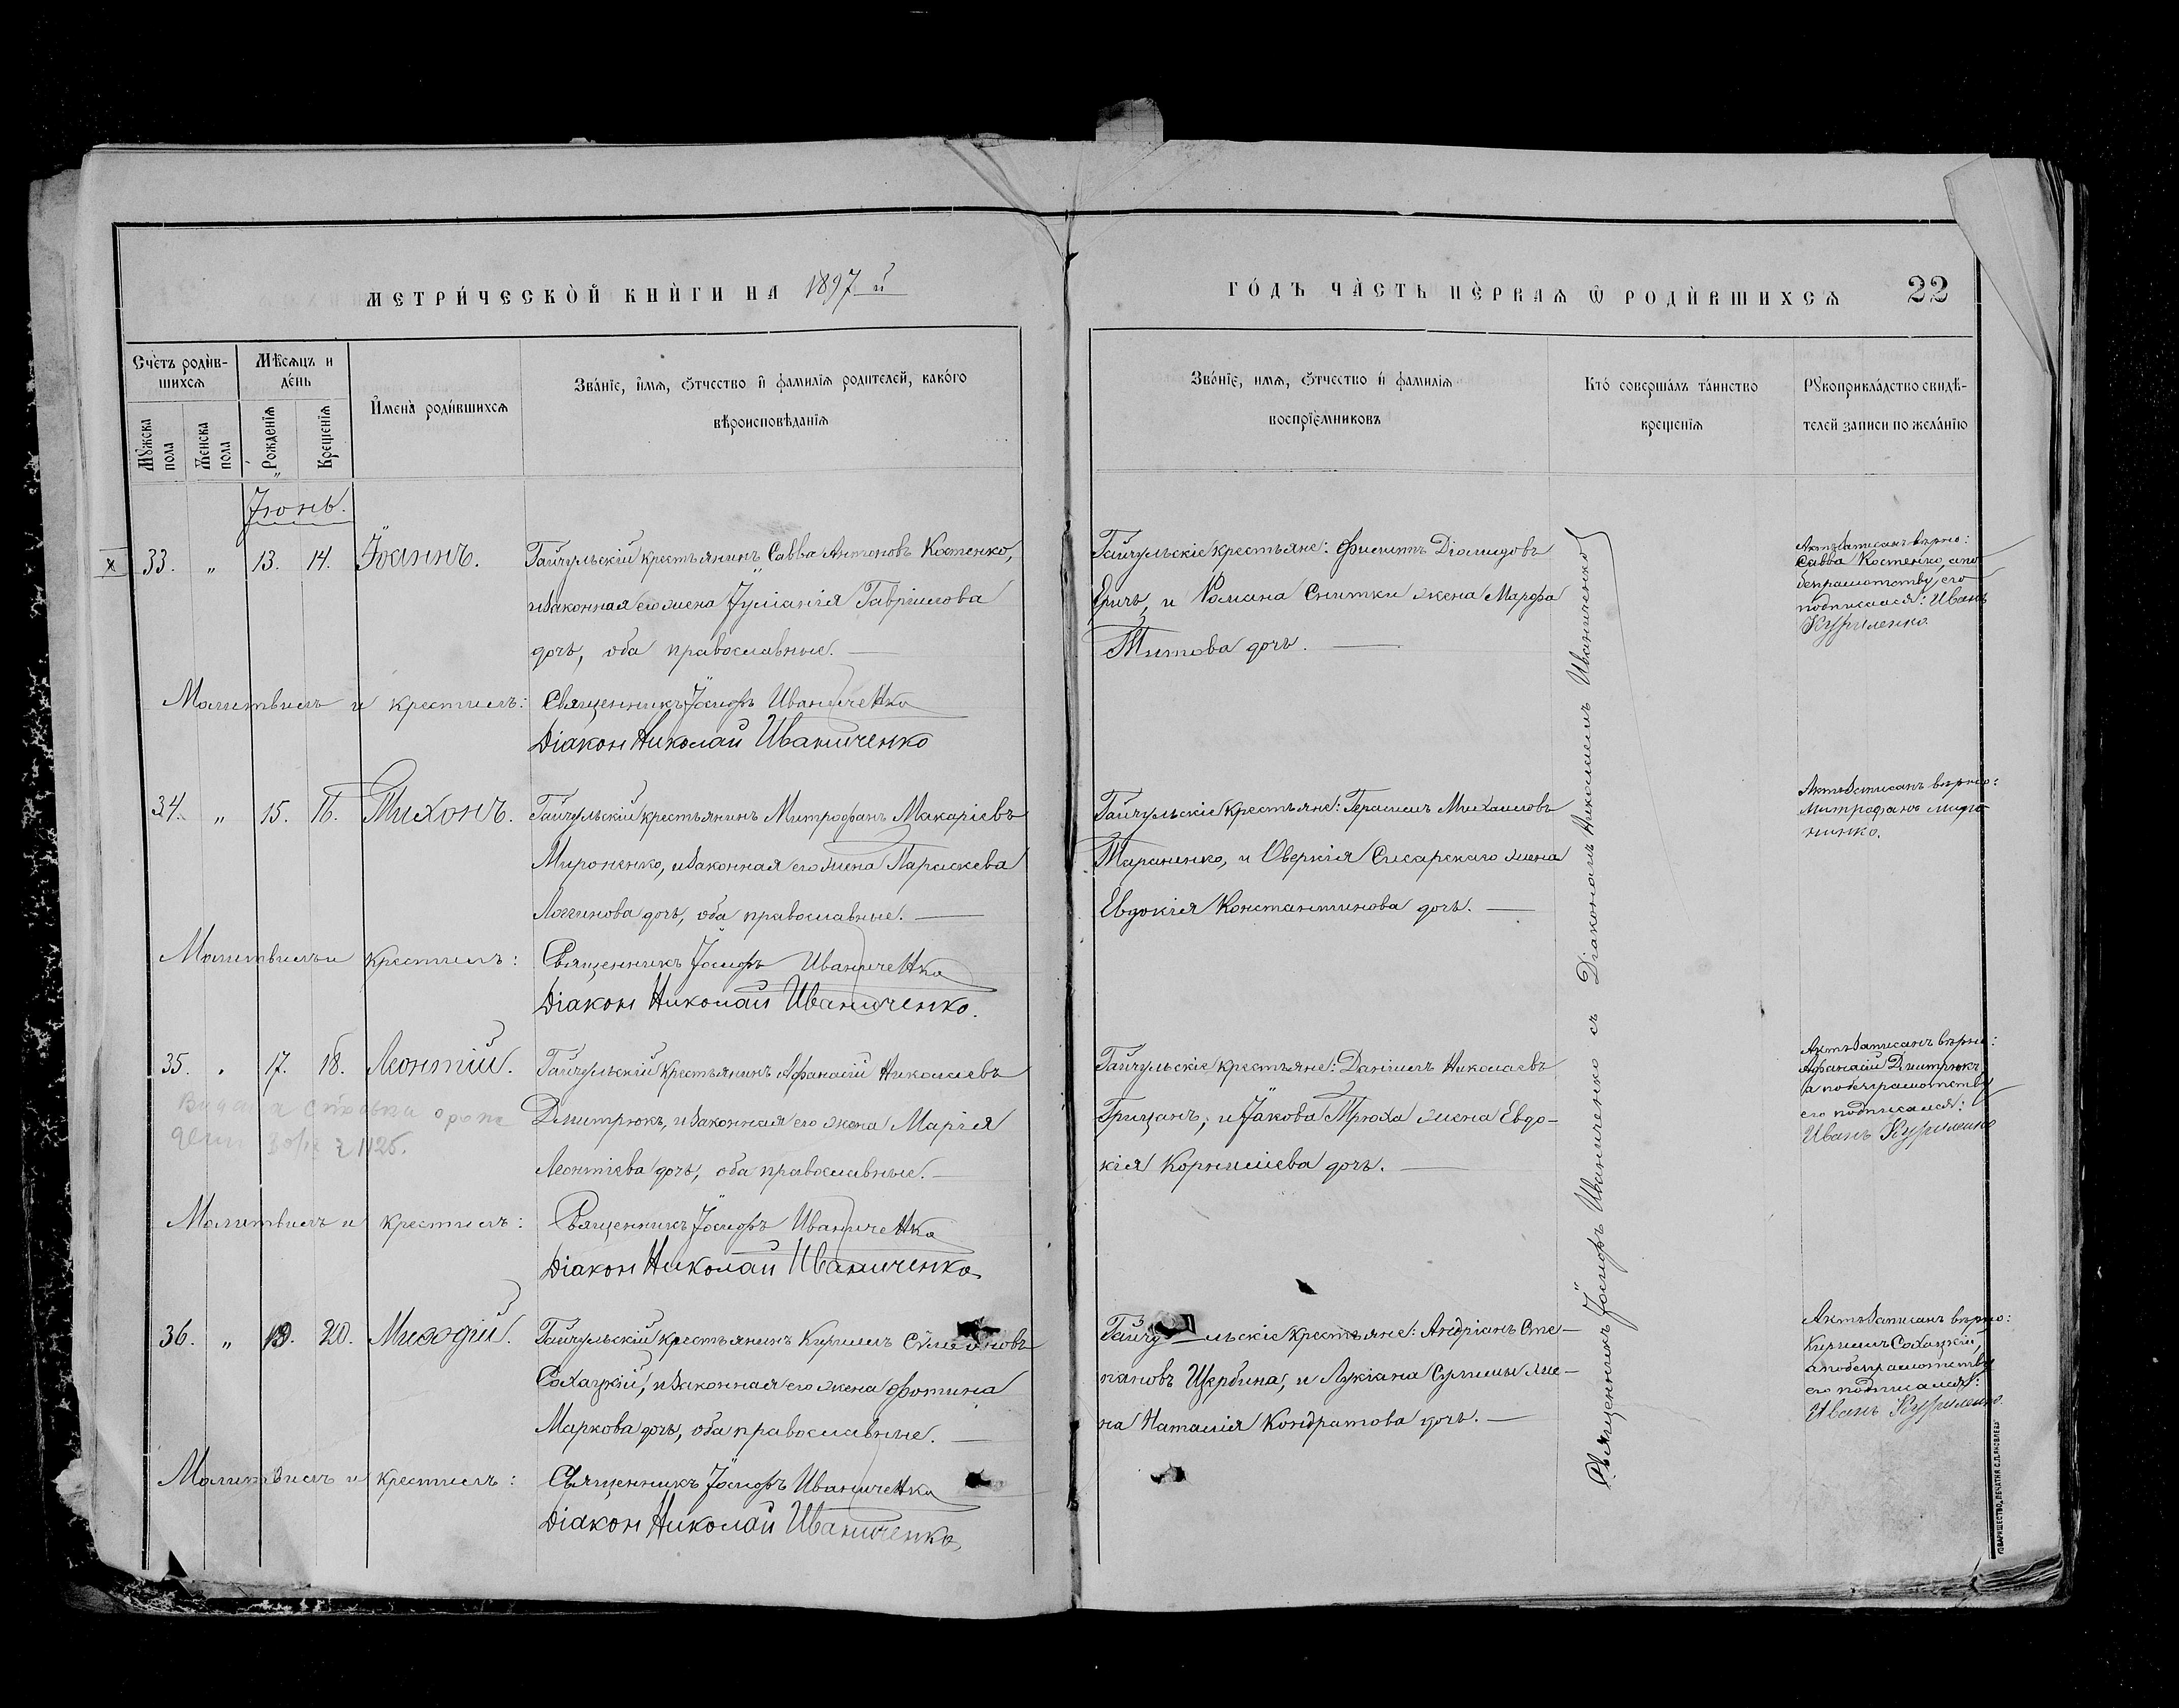 МЕТРИ́ЧЕСКОЙ КНИ́ГИ НА 1897 й
ГО́ДЪ ЧА́СТЬ ПЕ́РВАЯ Ѿ РОДИ́ВШИХСѦ 22
Сче́тъ роди́в-
шихсѧ
Мѣ́сѧцъ и
де́нь
Мꙋжска
пола
Же́нска
пола
Рожде́нїѧ
Креще́нїѧ
И҆мена̀ роди́вшихсѧ
Зва́нїе, и҆́мѧ, ѻ҆́тчество и҆ фами́лїѧ роди́телей, како́го
вѣроисповѣ́данїѧ
Зва́нїе, и҆мѧ, ѻ҆́тчество и҆ фами́лїѧ
воспрїе́мниковъ
Кто̀ соверша́лъ та́инство
креще́нїѧ
Рꙋкоприкла́дство свидѣ́-
телей за́писи по жела́нїю
Іюнь.
х 33. „ 13. 14. Іоаннъ.
Гайчульскій крестьянинъ Савва Антоновъ Костенко,
и законная его жена Іуліанія Гавріилова
дочь, оба православные. —
Гайчульскіе крестьяне: Филиппъ Діомидовъ
Еричъ, и Романа Снитки жена Марфа
Титова дочь. —
Актъ записанъ вѣрно:
Савва Костенко, а по
безграмотству его
подписался: Иванъ
Куриленко.
Молитвилъ и крестилъ: Священникъ Іосифъ Иваниченко
Діакон Николай Иваниченко
34. „ 15. 16. Тихонъ.
Гайчульскій крестьянинъ Митрофанъ Макаріевъ
Мироненко, и законная его жена Параскева
Логгинова дочь, оба православные. —
Гайчульскіе крестьяне: Герасимъ Михаиловъ
Тараненко, и Оверкія Слесарскаго жена
Евдокія Константинова дочь. —
Актъ записанъ вѣрно:
Митрофанъ
Молитвилъ и крестилъ: Священникъ Іосифъ Иваниченко
Діакон Николай Иваниченко.
35. „ 17. 18. Леонтій.
Гайчульскій крестьянинъ Афанасій Николаевъ
Дмитрюкъ, и законная его жена Марія
Леонтіева дочь, оба православные. —
Гайчульскіе крестьяне: Даніилъ Николаевъ
Грицанъ, и Іакова Трюха жена Евдо-
кія Корниліева дочь. —
Актъ записанъ вѣрно:
Афанасій Дмитрюкъ,
а по безграмотству
его подписался:
Иванъ Куриленко
Молитвилъ и крестилъ: Священникъ Іосифъ Иваниченко
Діакон Николай Иваниченко
36. „ 19. 20. Мефодій.
Гайчульскій крестьянинъ Кириллъ Сѵмеоновъ
Сохацкій, и законная его жена Фотина
Маркова дочь, оба православные. —
Гайчульскіе крестьяне: Андріанъ Сте-
пановъ Щербина, и Лукіана Сулимы же-
на Наталія Кондратова дочь. —
Актъ записанъ вѣрно:
Кириллъ Сохацкій,
а по безграмотству
его подписался:
Иванъ Куриленко
Молитвилъ и крестилъ: Священникъ Іосифъ Иваниченко
Діакон Николай Иваниченко
Священникъ Іосифъ Иваниченко съ Діакономъ Николаемъ Иваниченко